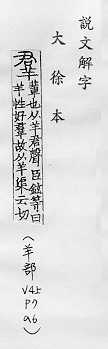 説文解字
大徐本
羣 輩也从羊君聲臣鉉等曰
羊性好羣故从羊渠云切
(羊部
V4上
P7
a6)